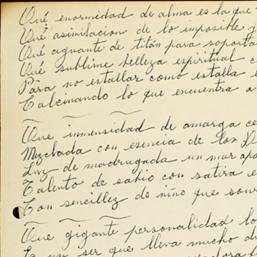 Qué enormidad de alma es la que
Qué asimilacion de lo imposible y
Qué aguante de titán para soporta
Qué sublime belleza espiritual c
Para no estallar como estalla e
Calcinando lo que encuentra a
Que inmensidad de amarga ce
Mezclada con esencia de los D
Luz de madrugada un mar apa
Talento de sabio con satira e
Con sencillez de niño que sour
Que gigante personalidad lo
ser que lleva mucho d